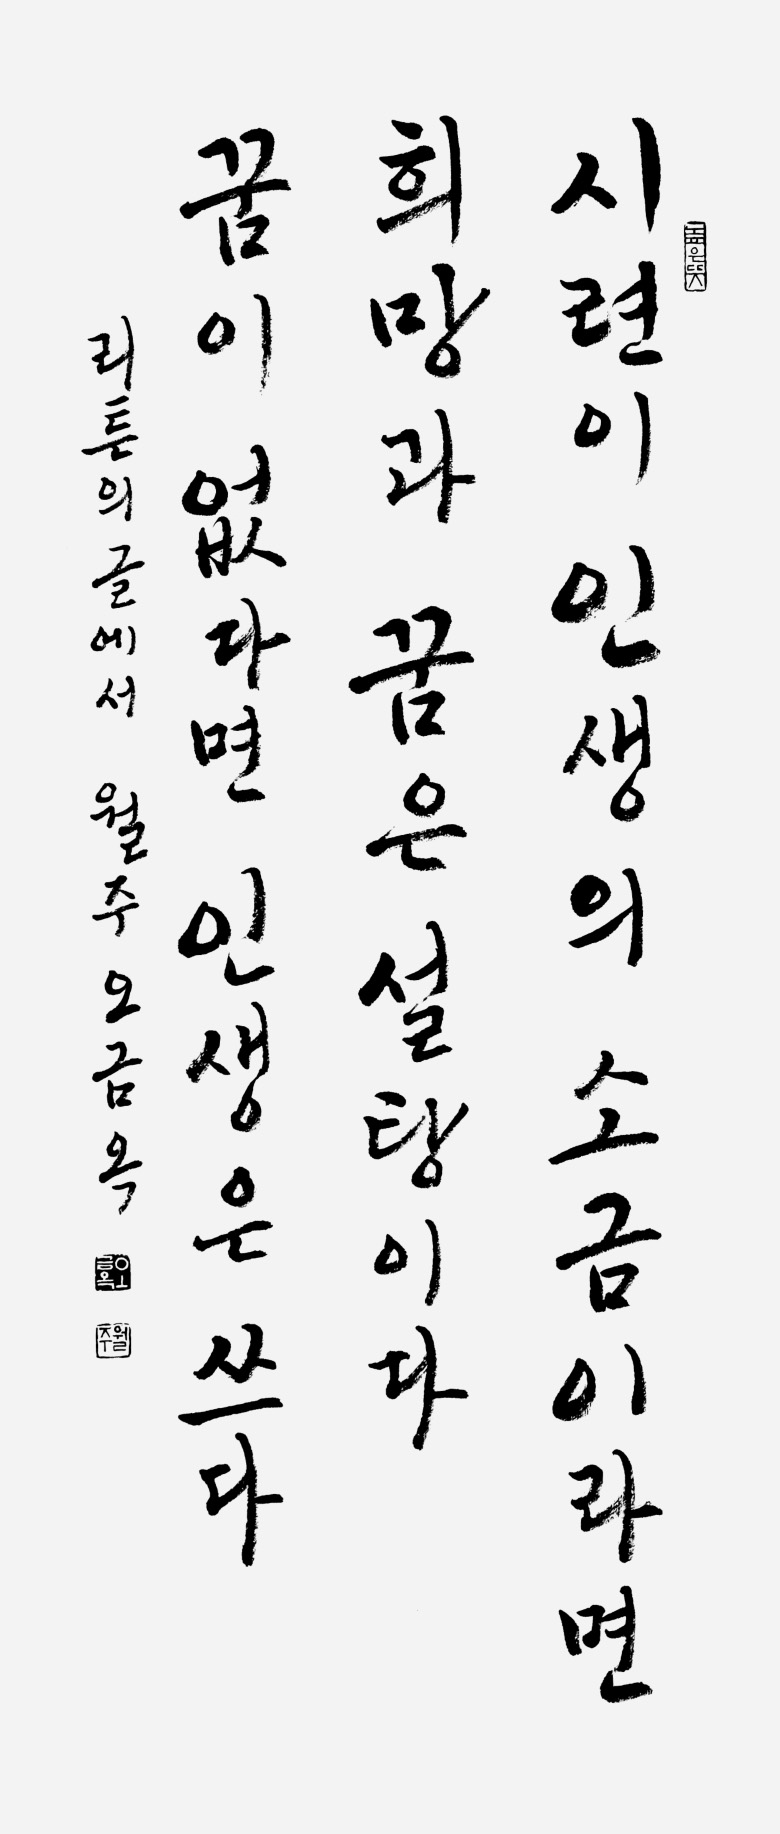 높은뜻
시련이 인생의 소금이라면
희망과 꿈은 설탕이다
꿈이 없다면 인생은 쓰다
리튼의 글에서 월주 오금옥
오금옥
월주